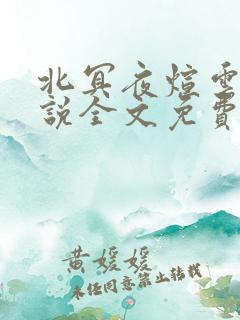 北冥夜煊雲
説全文免費
黄媛媛
未经同意禁止转载